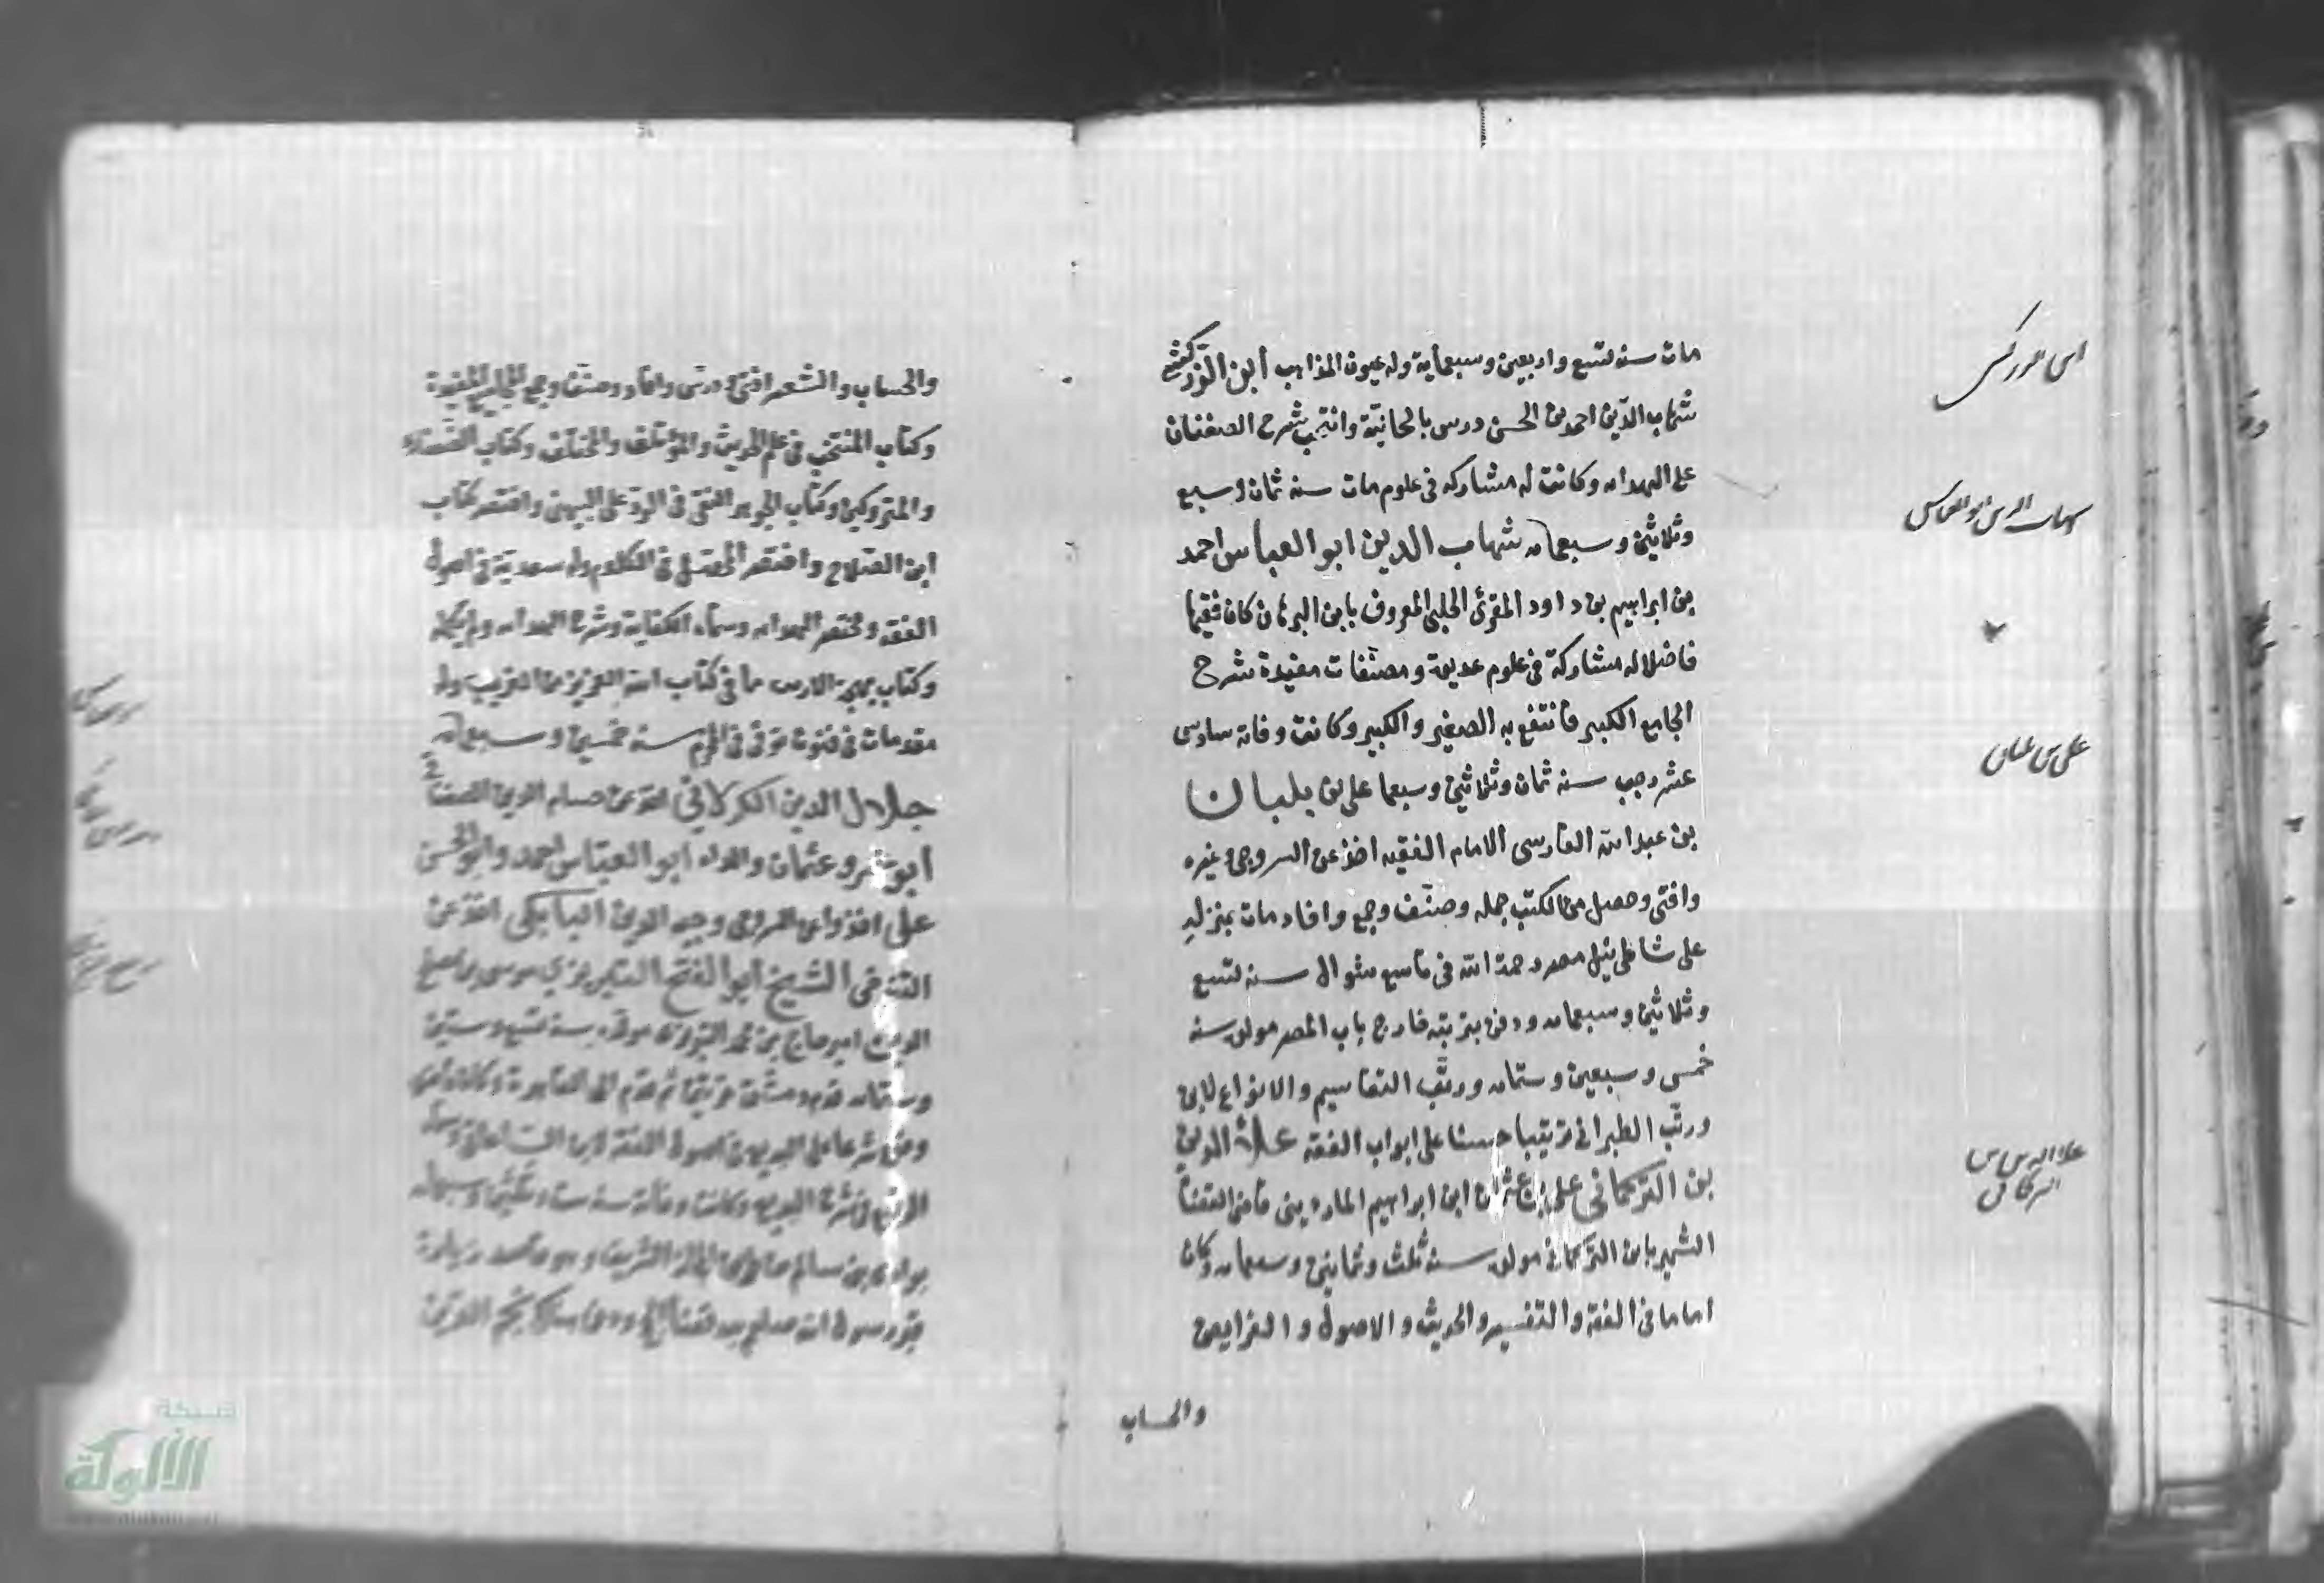 مات سنه تسع واربعين وسبعماية وله عيون المذاهب ابن الزركشي
شهاب الدين احمد بن الحسن درس بالحانيّة وانتخب شرح الصغناق
على الهدايه وكانت له مشاركه فى علوم مات سنه ثمان وسبع
وثلاثين وسبعمايه شهاب الدين ابو العباس احمد
بن ابراهيم بن داود المقرئ الحلبى المعروف بابن البرهان كان فقيها
فاضلا له مشاركة فى علوم عديدة ومصنّفات مفيدة شرح
الجامع الكبير فانتفع به الصغير والكبير وكانت وفاته سادس
عشر رجب سنه ثمان وثلاثين وسبعما على بن بلبان
بن عبد الله الفارسى الامام الفقيه اخذ عن السروجى وغيره
وافتى وحصل من الكتب جمله وصنّف وجمع وافاد مات بمنزله
على شاطى نيل مصر رحمة الله فى تاسع شوال سنه تسع
وثلاثين وسبعمايه ودفن بتربته خارج باب النصر مولده سنه
خمس وسبعين وستمايه ورتّب التقاسيم والانواع لابن
ورتّب الطبرانى ترتيبا حسنا على ابواب الفقه علاء الدين
بن التركمانى على بن عثمان ابن ابراهيم الماردينى قاضى القضاة
الشهير بابن التركمانى مولده سنه ثلث وثمانين وسبعمايه وكان
اماما فى الفقه والتفسير والحديث والاصول والفرايض
والحساب
ابن الزركشى
شهاب الدين ابو العباس
على بن بلبان
علاء الدين بن
التركمانى
والحساب والشعر افتى ودرس وافاد وصنّف وجمع المجاميع المفيدة
وكتاب المنتخب فى علم الحديث والمؤتلف والمختلف وكتاب الضعفاء
والمتروكين وكتاب الجوهر النقى فى الردّ على البيهقى واختصر كتاب
ابن الصلاح واختصر المحصّل فى الكلام وله سعدية فى اصول
الفقه ومختصر الهدايه وسماه الكفاية وشرح الهدايه ولم يكمله
وكتاب بهجة الاريب مما فى كتاب الله العزيز من الغريب وله
مقدمات فى فنون توفى فى المحرم سنه خمسين وسبعمايه
جلال الدين الكرلانى اخذ عن حسام الدين الصغناقى
ابو عمرو عثمان والد ابو العباس احمد وابو الحسن
على اخذوا عن وجيه الدين الباىكى اخذ عن
الشيخ ابو الفتح التبريزي موسى بن مصلح
الدين امير حاج بن محمد التبريزى مولده سنه تسع وستين
وستمايه قدم دمشق ثم قدم الى القاهرة
وضع شرحا على البديع فى اصول الفقه ابن الساعاتى وسماه
الرفيع فى شرح البديع وكانت وفاته سنه ست وثلثين وسبعمايه
بوادى بن سالم من طريق الحجاز الشريف وهو قاصد زيارة
قبر رسول الله صلعم بعد قضا الحج ومناسكه نجم الدين
شبكة
الألوكة